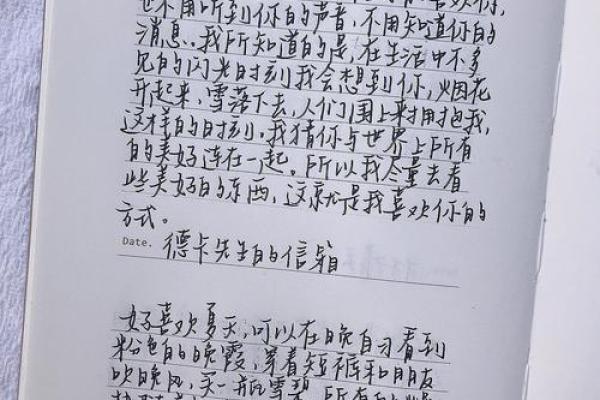 也不用听到你的声音,不用知道你的
消息..我所知道的是,在生活中不多
见的闪光时刻我会想到你,烟花
开起来,雪落下去,人们围上来拥抱我,
这样的时刻.我猜你与世界上所有
的美好连在一起。所以我尽量去看
些美好的东西,这就是我喜欢你的
方式。
Date. 德卡先生的信箱
好喜欢夏天,可以在晚自习看到
粉色的晚霞,穿着短裤和朋友
吹晚风,买一瓶雪碧,所有的